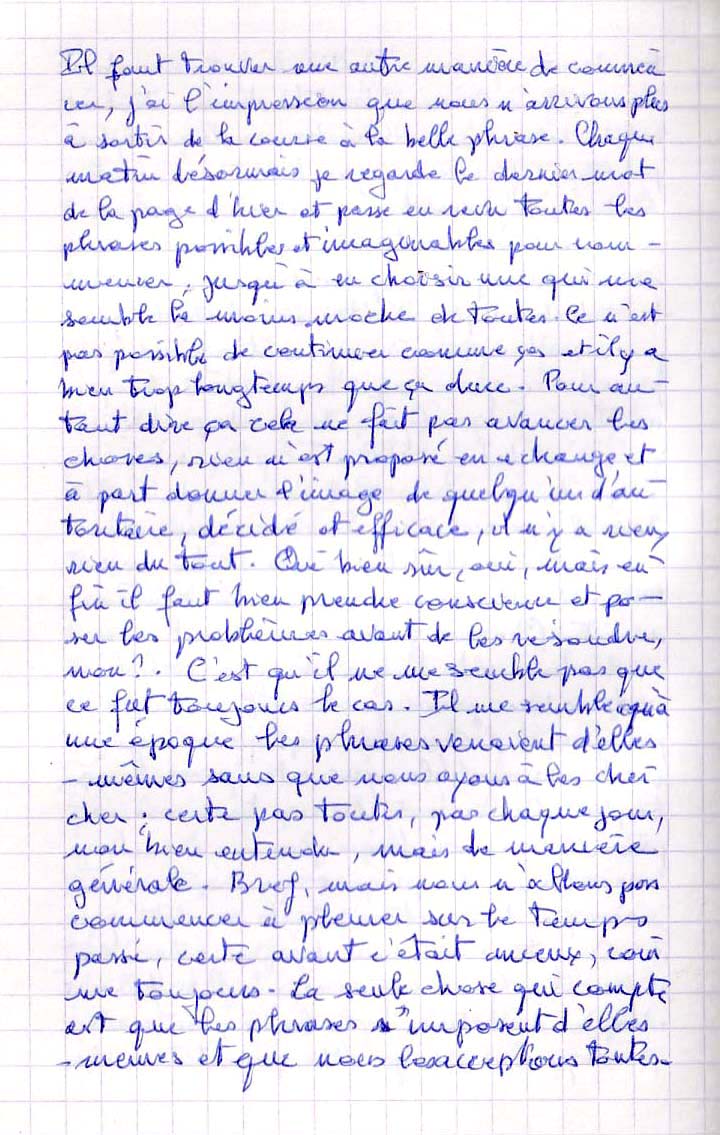 Il faut trouver une autre manière de commen
cer, j'ai l'impression que nous n'arrivons plus
à sortir de la course à la belle phrase. Chaque
matin désormais je regarde le dernier mot
de la page d'hier et passe en revu toutes les
phrases possibles et imaginables pour com-
mencer, jusqu'à en choisir une qui me
semble la moins moche de toutes. Ce n'est
pas possible de continuer comme ça et il y a
bien trop longtemps que ça dure. Pour au-
tant dire ça cela ne fait pas avancer les
choses, rien n'est proposé en échange, et
à part donner l'image de quelqu'un d'au-
toritaire, décidé et efficace, il n'y a rien,
rien du tout. Oui bien sûr, oui, mais en-
fin il faut bien prendre conscience et po-
ser les problèmes avant de les résoudre,
non?. C'est qu'il ne me semble pas que
ce fut toujours le cas. Il me semble qu'à
une époque les phrases venaient d'elles
-mêmes sans que nous ayons à les cher
cher; certe pas toutes, pas chaque jour,
non bien entendu, mais de manière
générale. Bref, mais nous n'allons pas
commencer à pleurer sur le temps
passé, certe avant c'était mieux, com
me toujours. La seule chose qui compte
est que les phrases s'imposent d'elles
-memes et que nous les acceptions toutes.